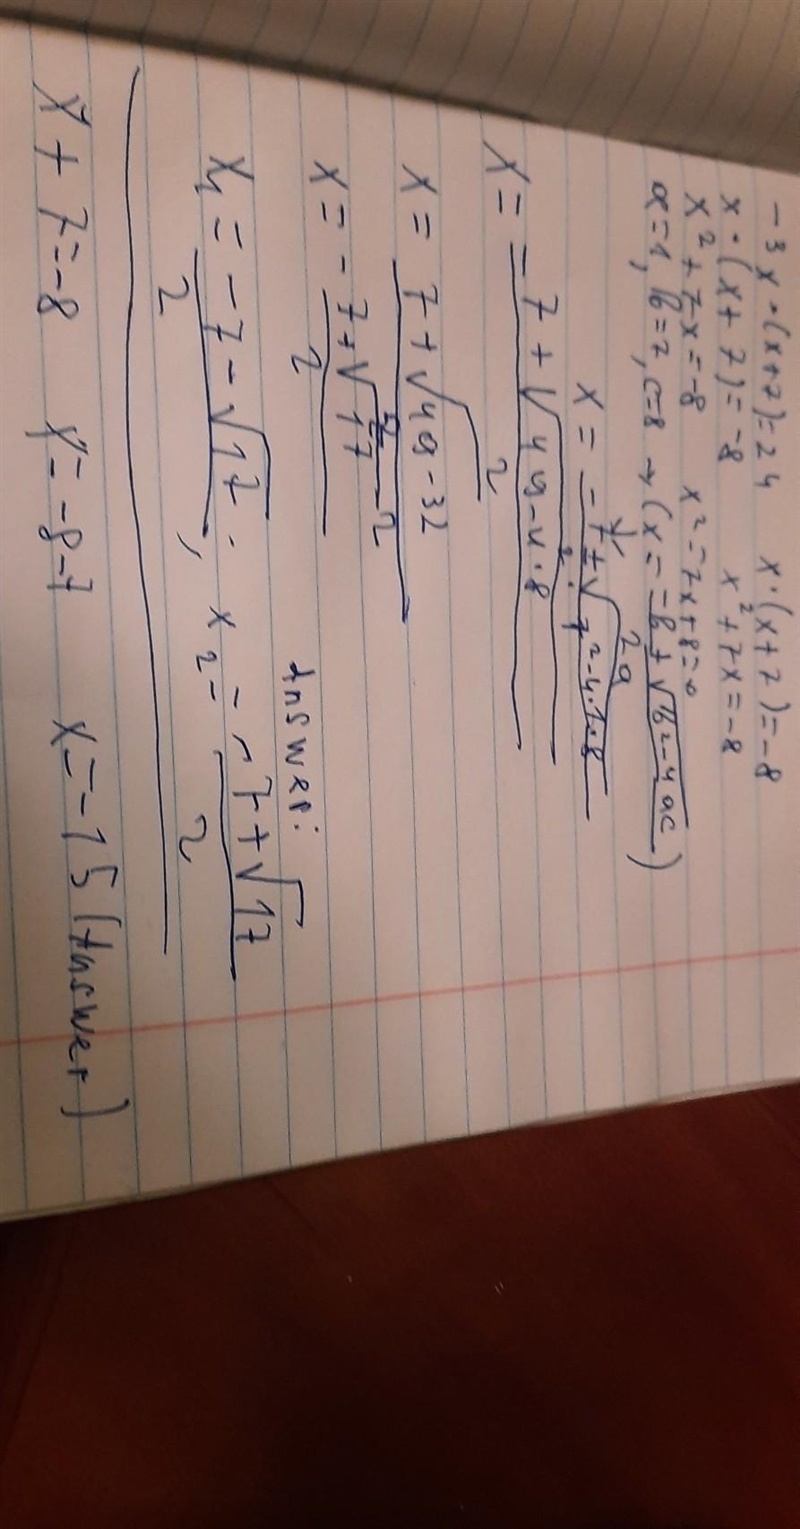 -3x·(x+7)=24 x·(x+7)=-8
x·(x+7)=-8 x²+7x=-8
x²+7x=-8 x²-7x+8=0
a=1, b=7, c=8 → (x = -b ± √b²-4ac / 2a)
x = -7 ± √7²-4·1·8
x = -7 + √49-4·8 / 2
x = 7 + √49-32 / 2
x = -7 + √17 / 2
Answer:
x₁ = -7 - √17 / 2, x₂ = -7 + √17 / 2
x + 7 = -8 x = -8-7 x = -15 (Answer)